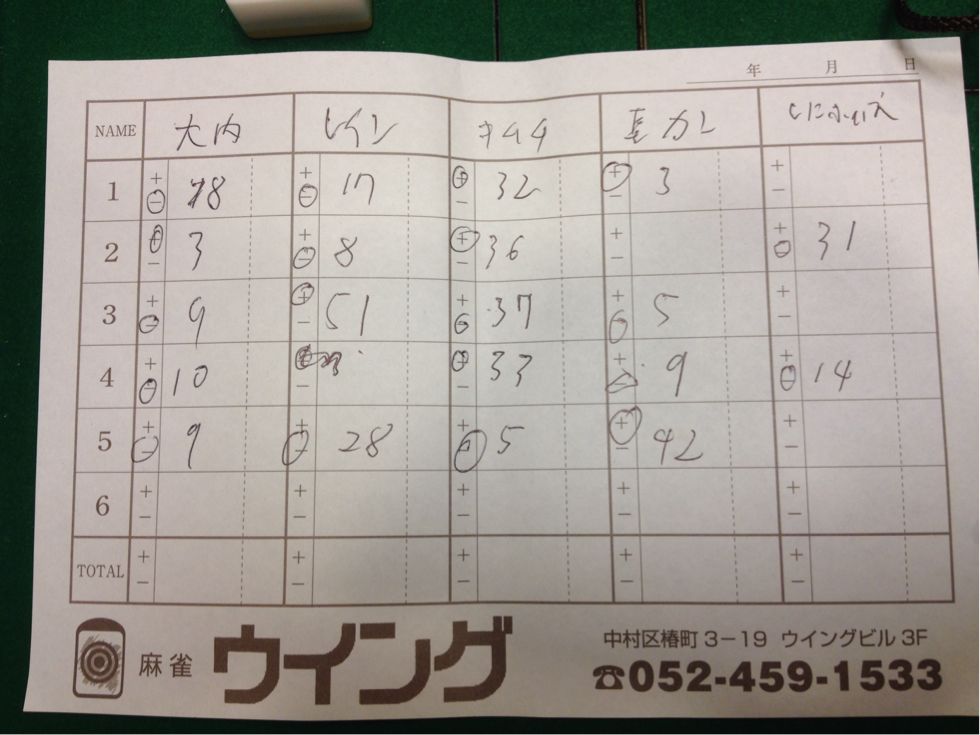 年 月 日
NAME 大内 レイン キムチ 長カレ
1 + - 18 + - 17 + - 32 + - 3 + -
2 + - 3 + - 8 + - 36 + - + - 31
3 + - 9 + - 51 + - 37 + - 5 + -
4 + - 10 + - + - 33 + - 9 + - 14
5 + - 9 + - 28 + - 5 + - 42 + -
6 + - + - + - + - + -
TOTAL + - + - + - + - + -
麻雀 ウイング
中村区椿町3-19 ウイングビル3F
☎052-459-1533